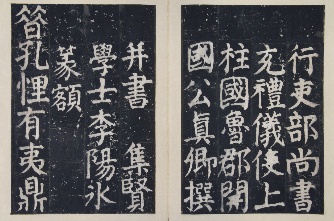 行吏部尚書
充禮儀使上
柱國魯郡開
國公真卿撰
并書 集賢
學士李陽冰
篆額
昔孔悝有夷鼎